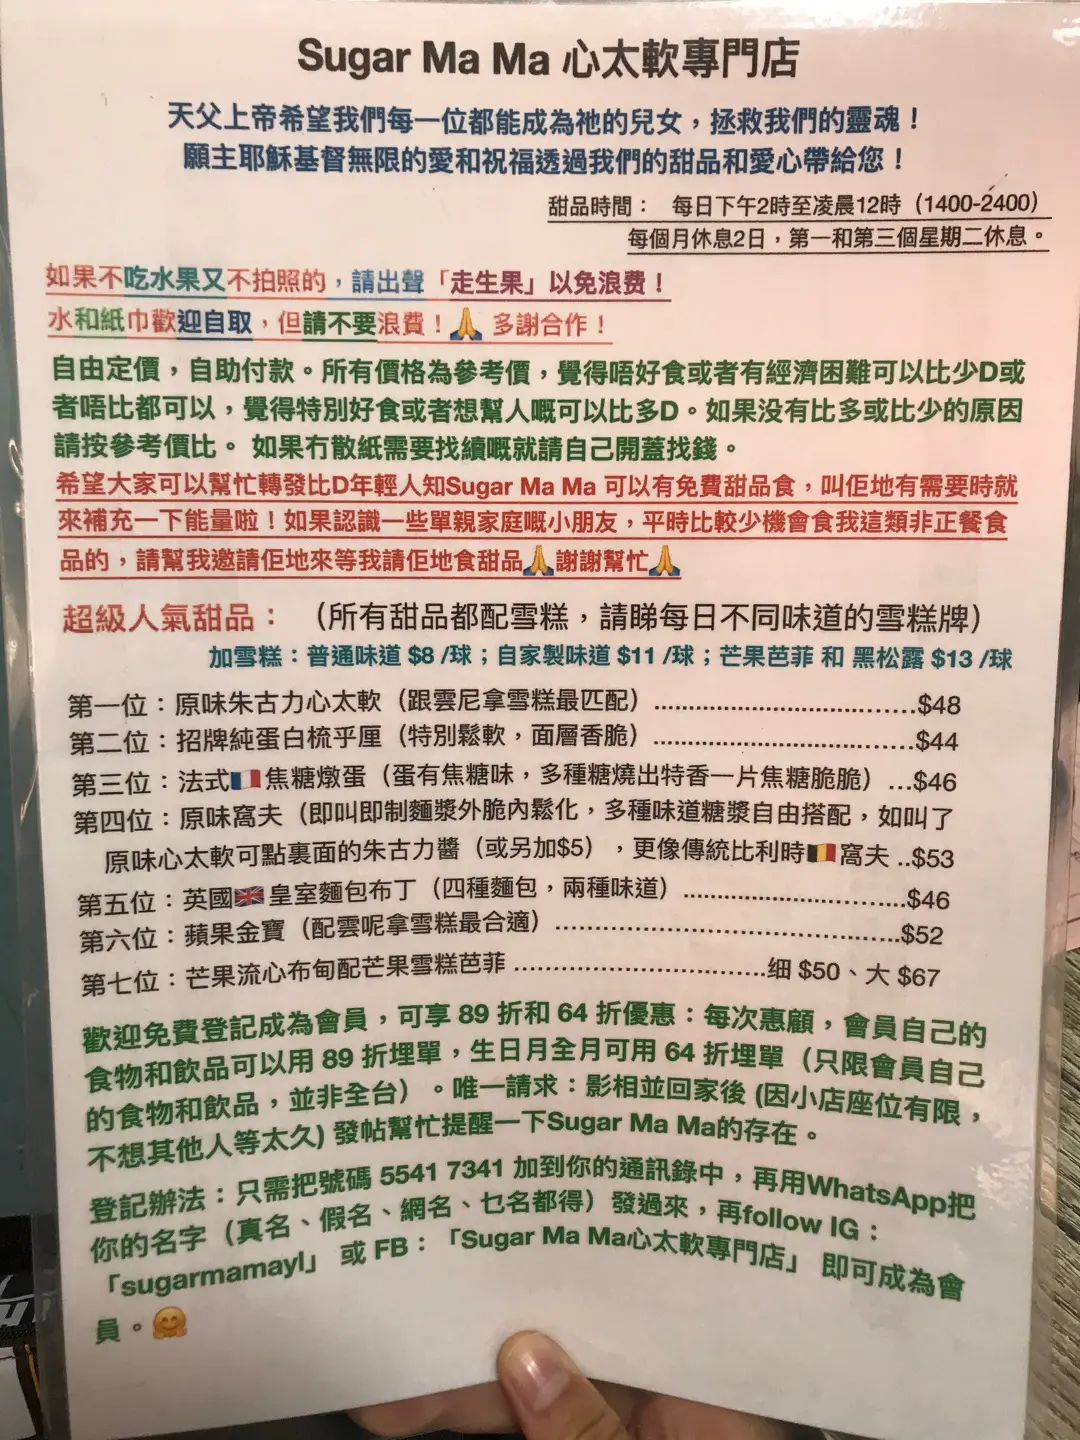 Sugar Ma Ma 心太軟專門店
天父上帝希望我們每一位都能成為祂的兒女，拯救我們的靈魂！
願主耶穌基督無限的愛和祝福透過我們的甜品和愛心帶給您！
甜品時間： 每日下午2時至凌晨12時（1400-2400）
每個月休息2日，第一和第三個星期二休息。
如果不吃水果又不拍照的，請出聲「走生果」以免浪费！
水和紙巾歡迎自取，但請不要浪費！🙏 多謝合作！
自由定價，自助付款。所有價格為參考價，覺得唔好食或者有經濟困難可以比少D或
者唔比都可以，覺得特別好食或者想幫人嘅可以比多D。如果没有比多或比少的原因
請按參考價比。 如果冇散紙需要找續嘅就請自己開蓋找錢。
希望大家可以幫忙轉發比D年輕人知Sugar Ma Ma 可以有免費甜品食，叫佢地有需要時就
來補充一下能量啦！如果認識一些單親家庭嘅小朋友，平時比較少機會食我這類非正餐食
品的，請幫我邀請佢地來等我請佢地食甜品🙏謝謝幫忙🙏
超級人氣甜品：（所有甜品都配雪糕，請睇每日不同味道的雪糕牌）
加雪糕：普通味道 $8 /球；自家製味道 $11 /球；芒果芭菲 和 黑松露 $13 /球
第一位：原味朱古力心太軟（跟雲尼拿雪糕最匹配）........................................$48
第二位：招牌純蛋白梳乎厘（特別鬆軟，面層香脆）........................................$44
第三位：法式🇫🇷焦糖燉蛋（蛋有焦糖味，多種糖燒出特香一片焦糖脆脆）...$46
第四位：原味窩夫（即叫即制麵漿外脆內鬆化，多種味道糖漿自由搭配，如叫了
原味心太軟可點裏面的朱古力醬（或另加$5），更像傳統比利時🇧🇪窩夫 ..$53
第五位：英國🇬🇧皇室麵包布丁（四種麵包，兩種味道）..................................$46
第六位：蘋果金寶（配雲呢拿雪糕最合適）....................................................$52
第七位：芒果流心布甸配芒果雪糕芭菲 ......................................细 $50、大 $67
歡迎免費登記成為會員，可享 89 折和 64 折優惠：每次惠顧，會員自己的
食物和飲品可以用 89 折埋單，生日月全月可用 64 折埋單（只限會員自己
的食物和飲品，並非全台）。唯一請求：影相並回家後 (因小店座位有限，
不想其他人等太久) 發帖幫忙提醒一下Sugar Ma Ma的存在。
登記辦法：只需把號碼 5541 7341 加到你的通訊錄中，再用WhatsApp把
你的名字（真名、假名、網名、乜名都得）發過來，再follow IG：
「sugarmamayl」 或 FB：「Sugar Ma Ma心太軟專門店」 即可成為會
員。🤗